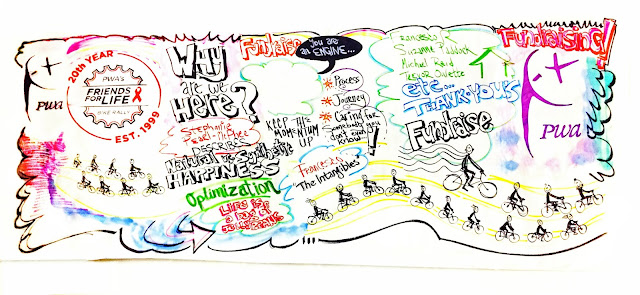 20th YEAR
PWA's
FRIENDS
FOR LIFE
BIKE RALLY
EST. 1999
PWA
WHY
ARE WE
HERE?
Stephanie
Pearl-McPhee
DESCRIBES
Natural vs Synthetic
HAPPINESS
Optimization
LIFE IS
Fundraise
YOU ARE
AN ENGINE...
KEEP THE
MOMENTUM
UP
Process
Journey
Caring for
somebody you
don't even
know!
Francesco
The Intangibles
Francesco
Suzanne Paddock
Michael Reid
Trevor
etc...
THANK YOUS
Fundraise
Fundraising!
PWA